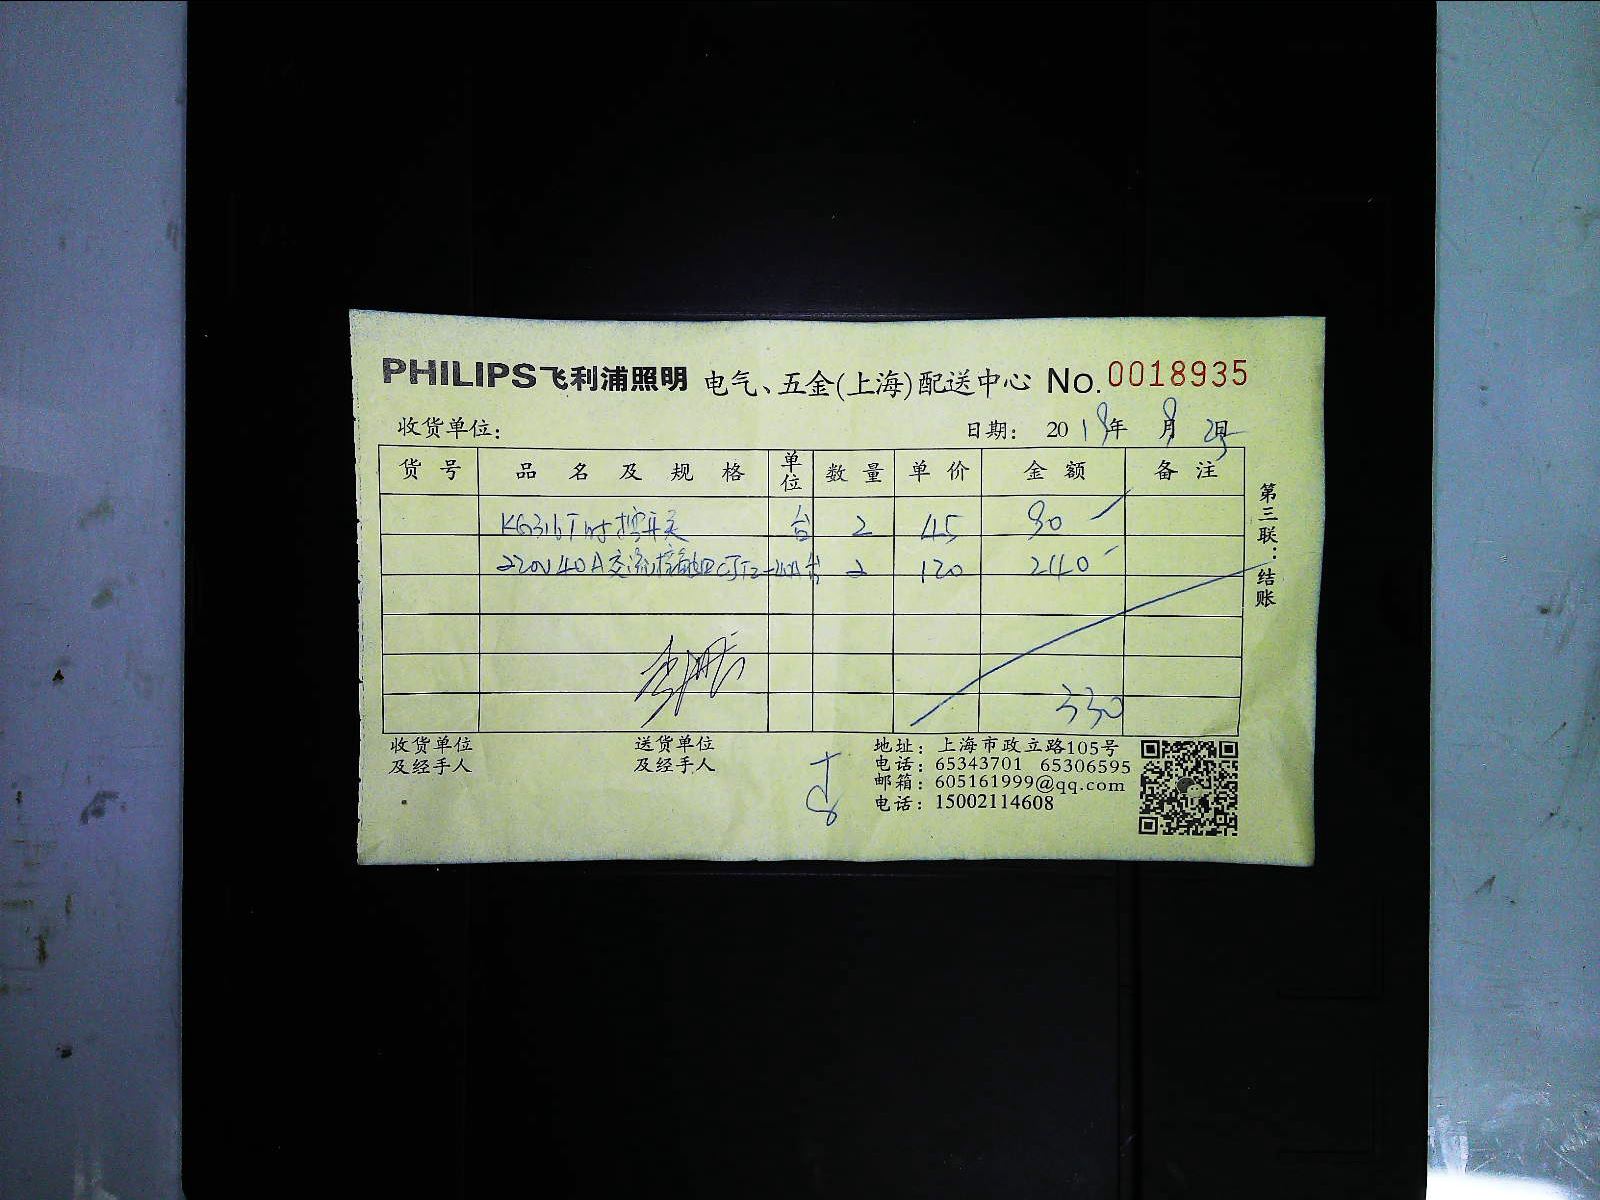 PHILIPS飞利浦照明 电气、五金(上海)配送中心 No.0018935
收货单位: 日期: 2019年 8月 25日
货号 品名及规格 单位 数量 单价 金额 备注
KG316T时控开关 台 2 45 90
220V40A交流接触器CJT2-40A 台 2 120 240
330
第三联:结账
收货单位及经手人
送货单位及经手人
地址: 上海市政立路105号
电话: 65343701 65306595
邮箱: 605161999@qq.com
电话: 15002114608